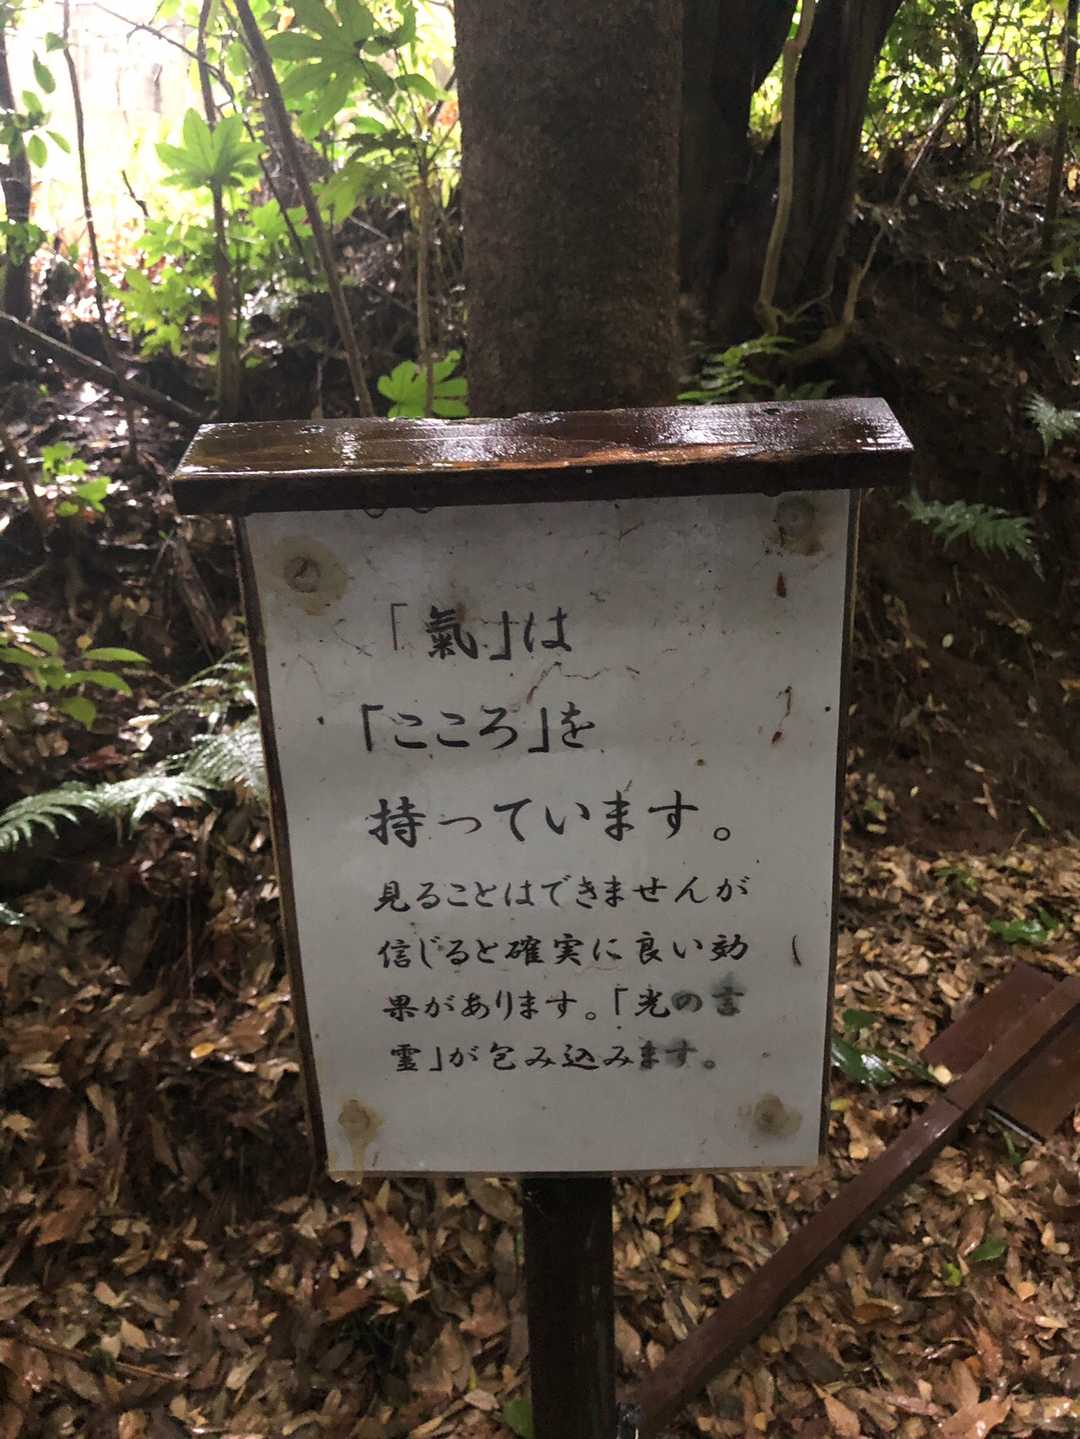 「氣」は
「こころ」を
持っています。
見ることはできませんが
信じると確実に良い効
果があります。「光の言
霊」が包み込みます。